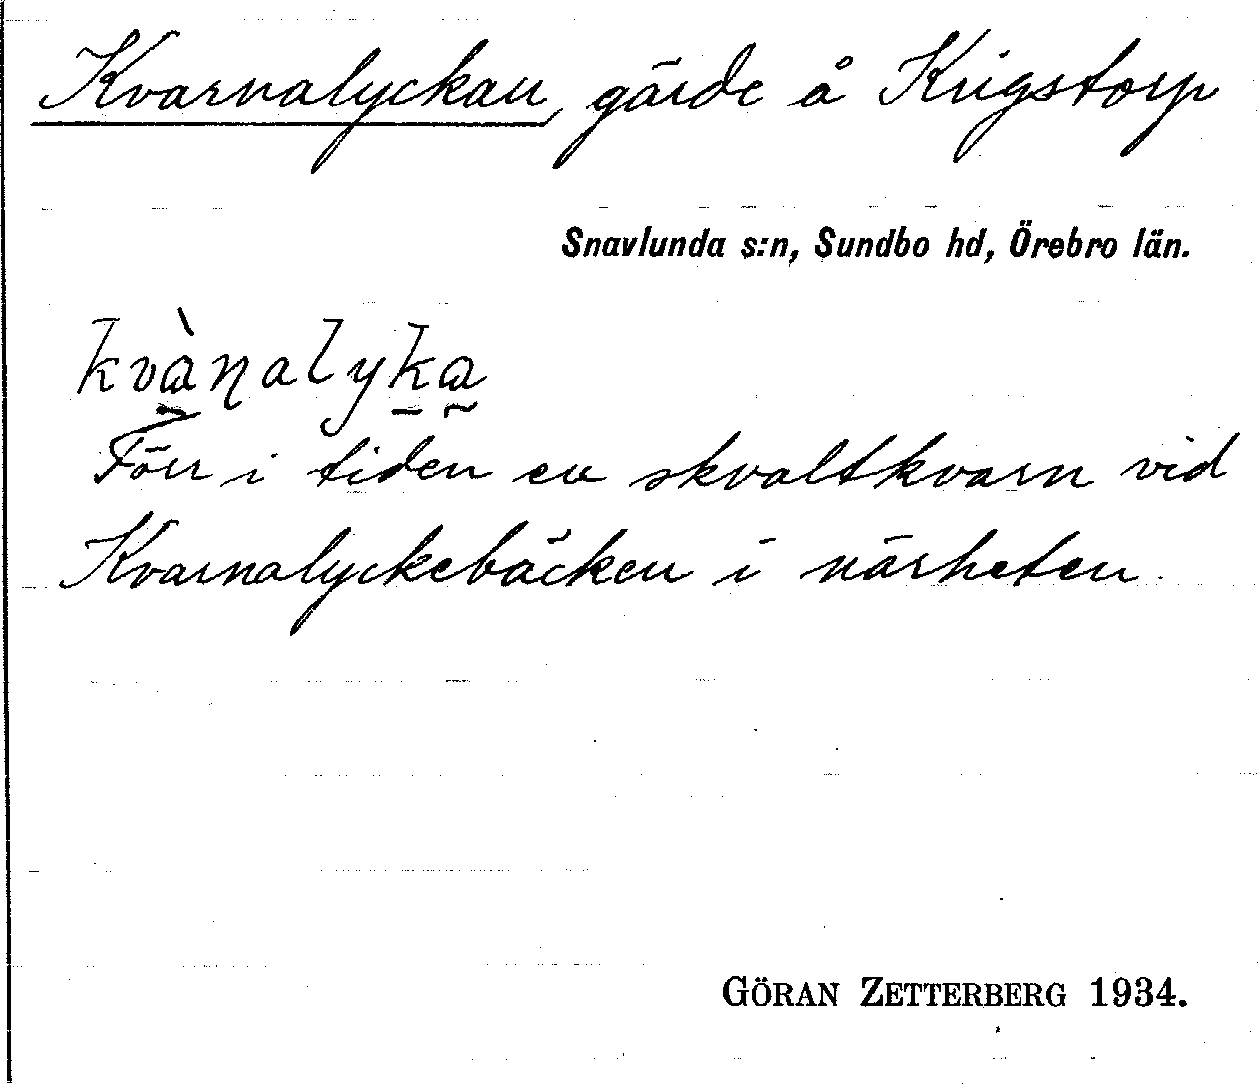 Kvarnalyckan, gärde å Krigstorp
Snavlunda s:n, Sundbo hd, Örebro län.
kvànalyka
Förr i tiden en skvaltkvarn vid
Kvarnalyckebäcken i närheten.
GÖRAN ZETTERBERG 1934.